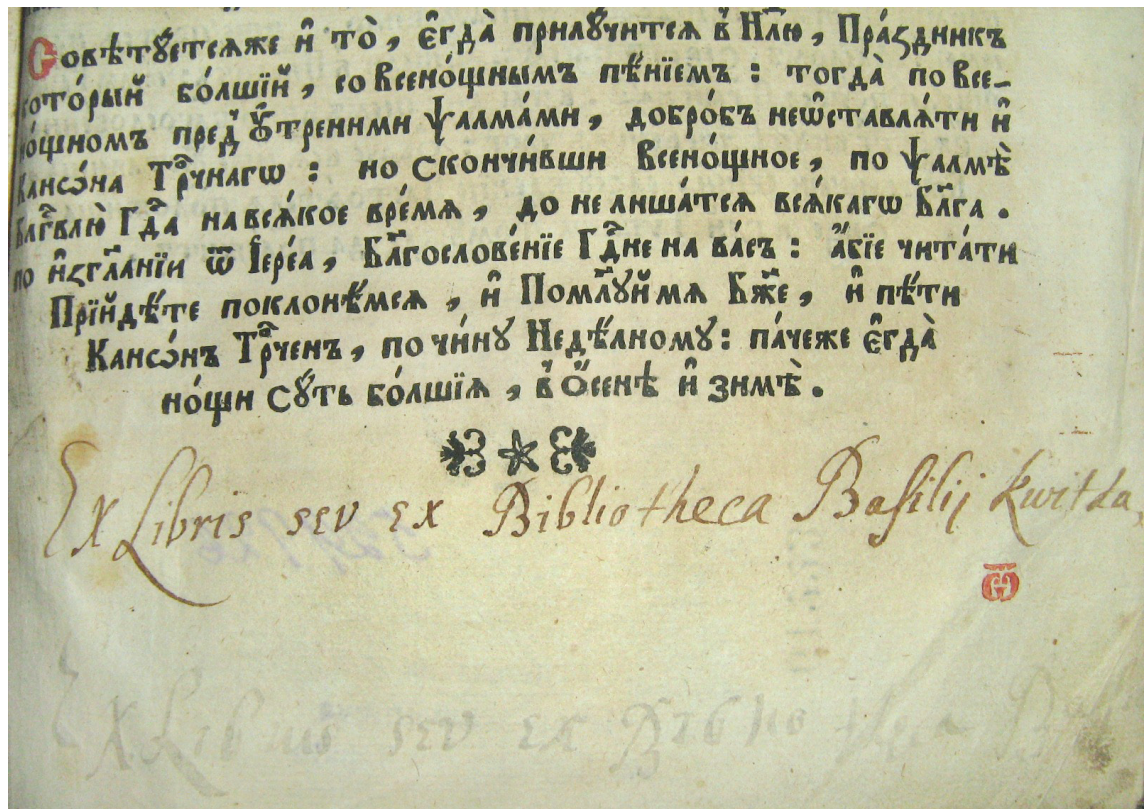 Совѣтꙋетсѧже и҆ то̀, є҆гда̀ прилꙋ́читсѧ в̾ Нл҃ю, Пра́здникъ
кото́рый бо́лшїй, со Всено́щнымъ пѣ́нїемъ: тогда̀ по Все-
но́щномъ пред̾ Оу҆́тренними Ѱалма́ми, добро́бъ неѡ҆ставлѧ́ти и҆
Канѡ́на Трⷪ҇чнагѡ: но скончи́вши Всено́щное, по Ѱалмѣ̀
Блгⷭ҇влю̀ Гдⷭ҇а на всѧ́кое вре́мѧ, до не лиша́тсѧ всѧ́кагѡ Бл҃га.
по и҆згл҃анїи ѿ І҆ере́а, Бл҃гослове́нїе Гдⷭ҇не на ва́съ: а҆́бїе чита́ти
Прїйдѣ́те поклонѣ́мсѧ, и҆ Помл҃ꙋй мѧ Бж҃е, и҆ пѣ́ти
Канѡ́нъ Трⷪ҇ченъ, по чи́нꙋ Недѣ́лномꙋ: па́чеже є҆гда̀
но́щи сꙋ́ть бо́лшїѧ, в̾ О҆́сенѣ и҆ зимѣ̀.
Ex Libris seu ex Bibliotheca Basilij Kwitka,
ѿ
Ex Libris seu ex Bibliotheca Basi